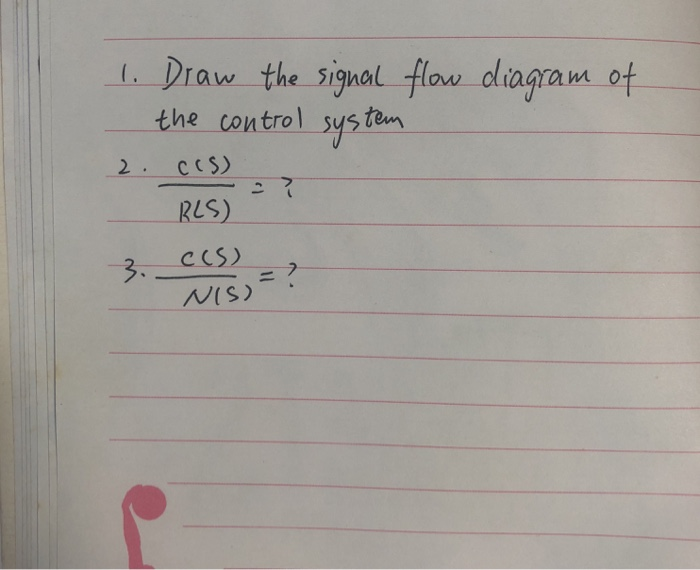 1. Draw the signal flow diagram of
the control system
2. C(S)
R(S) = ?
3. C(S)
N(S) = ?